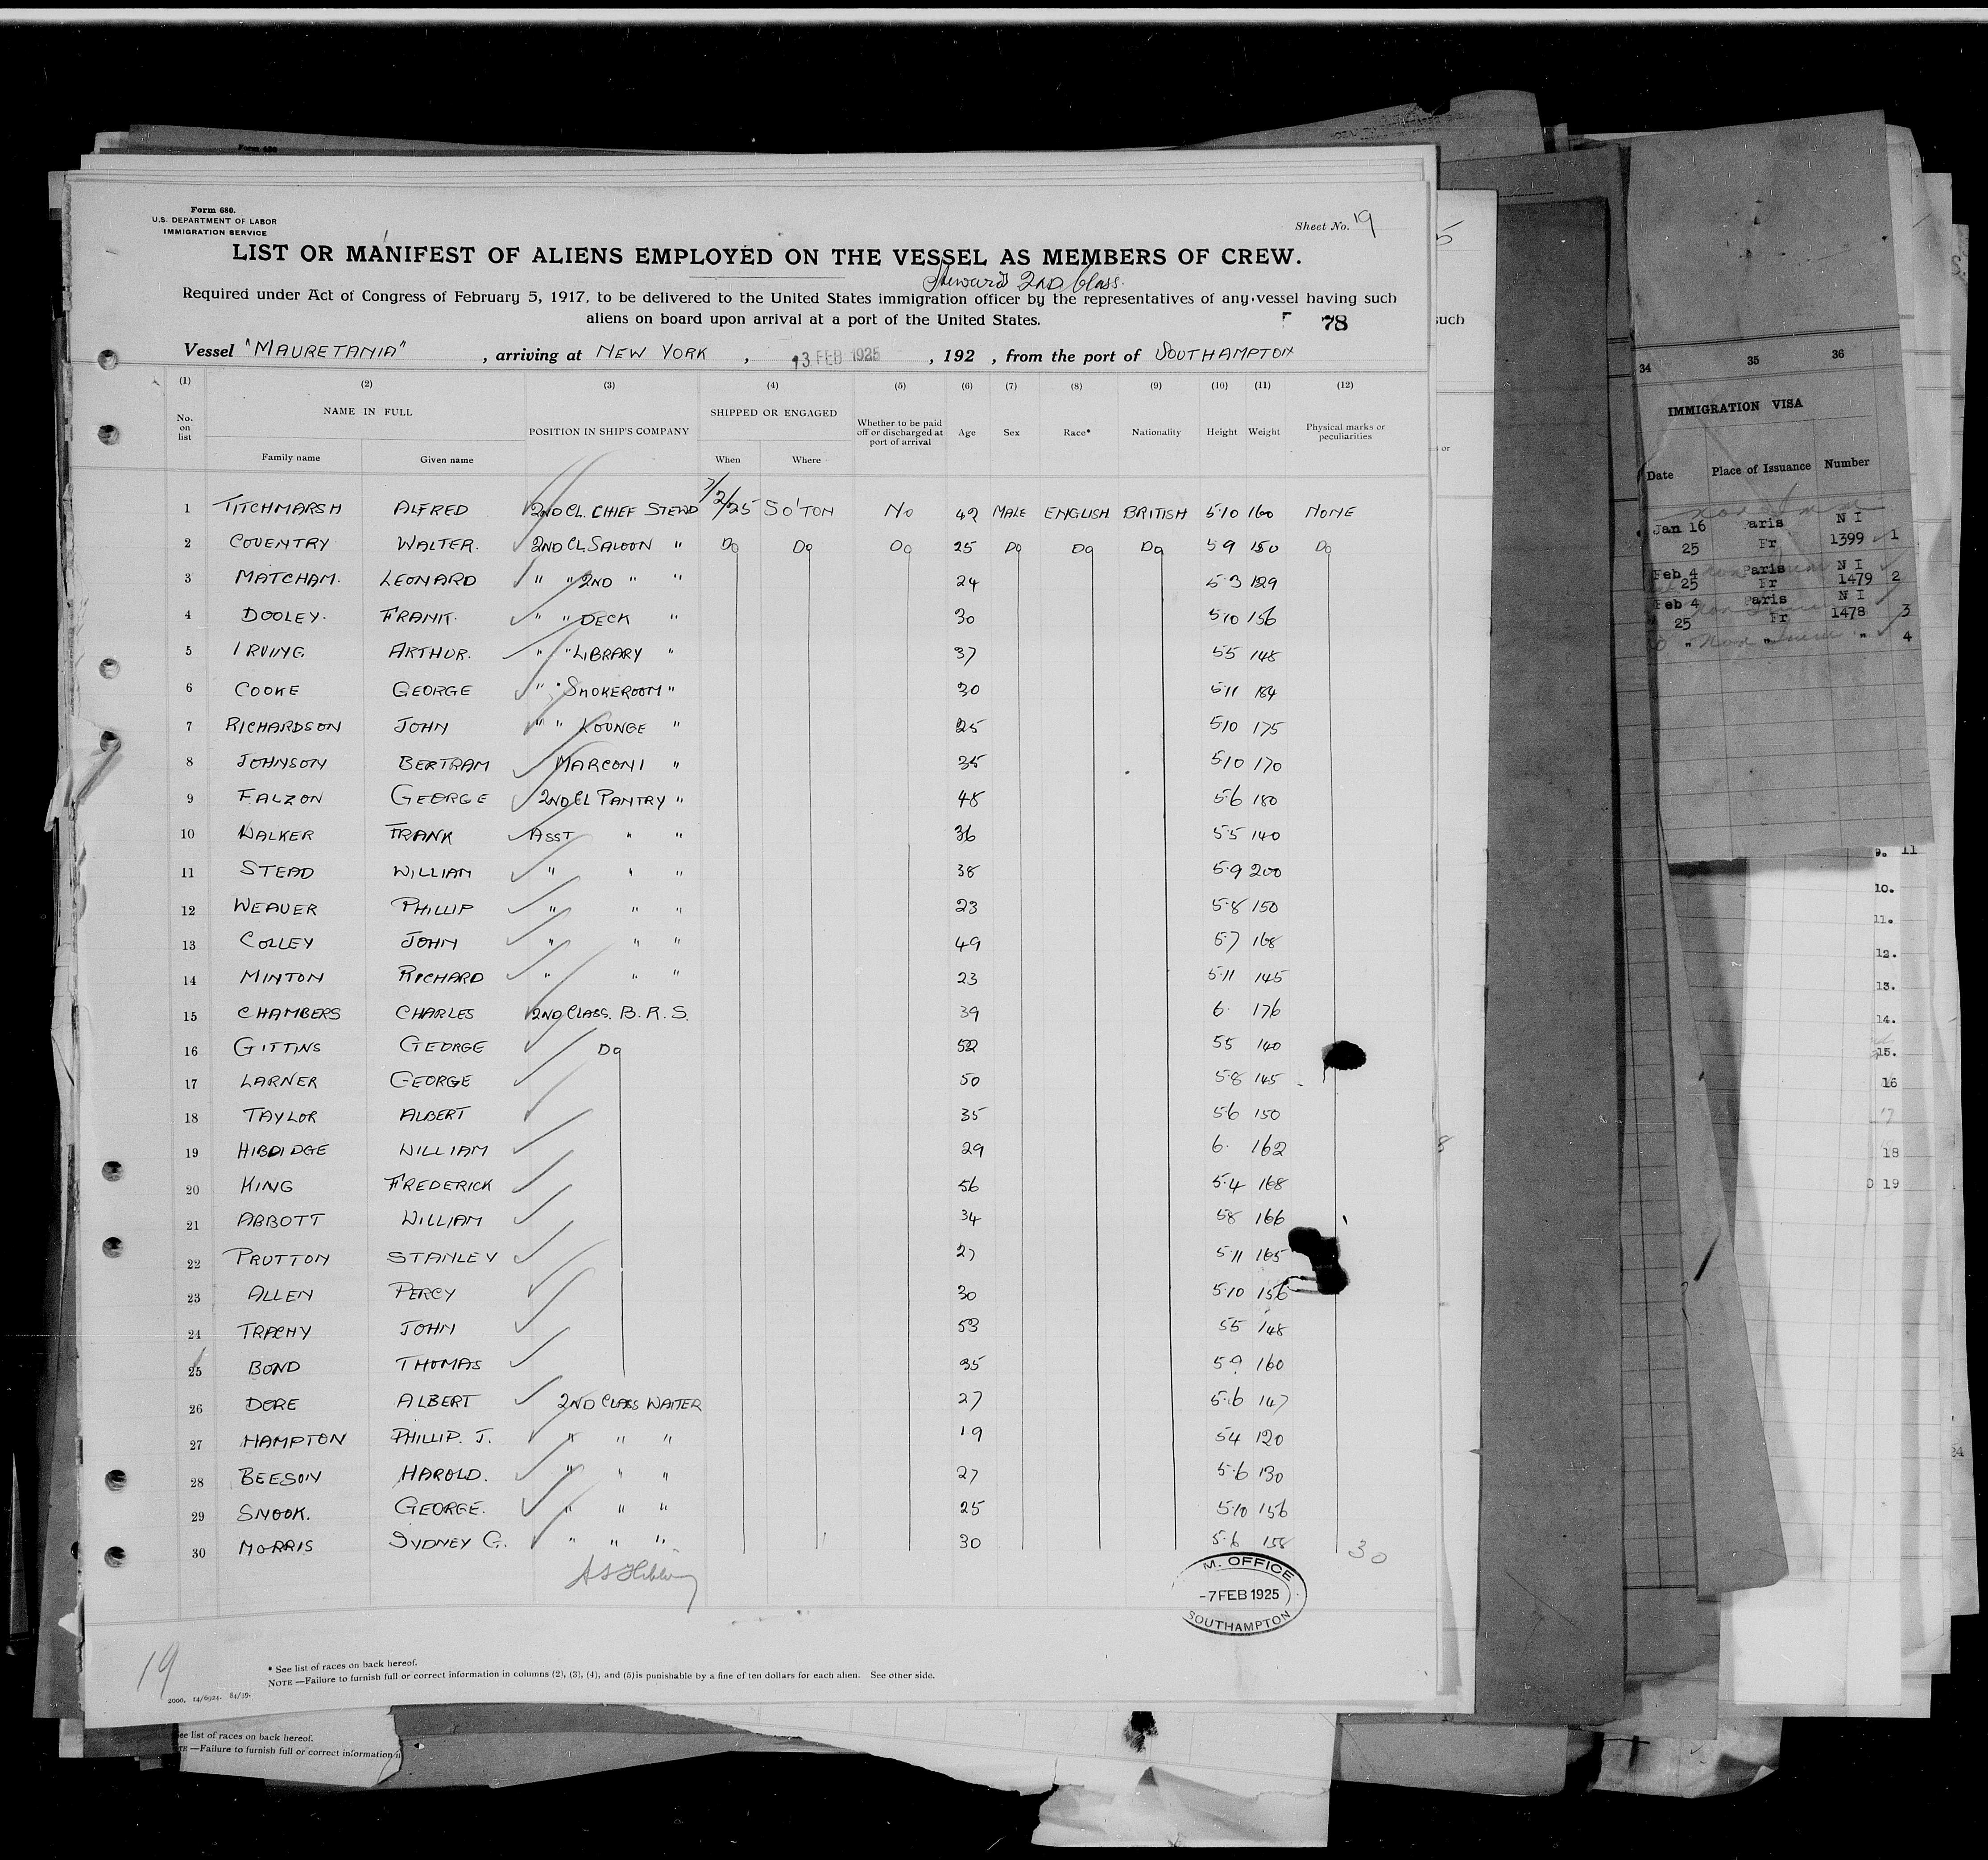 Form 680.
U.S. DEPARTMENT OF LABOR
IMMIGRATION SERVICE
Sheet No. 19
LIST OR MANIFEST OF ALIENS EMPLOYED ON THE VESSEL AS MEMBERS OF CREW.
Stewards 2ND Class.
Required under Act of Congress of February 5, 1917, to be delivered to the United States immigration officer by the representatives of any vessel having such
aliens on board upon arrival at a port of the United States.
78
Vessel "MAURETANIA", arriving at NEW YORK, 13 FEB 1925, 192 , from the port of SOUTHAMPTON
(1) (2) (3) (4) (5) (6) (7) (8) (9) (10) (11) (12)
No. on list
NAME IN FULL
Family name
Given name
POSITION IN SHIP'S COMPANY
SHIPPED OR ENGAGED
When
Where
Whether to be paid off or discharged at port of arrival
Age
Sex
Race*
Nationality
Height
Weight
Physical marks or peculiarities
1 TITCHMARSH ALFRED 2ND CL. CHIEF STEWD 7/2/25 SO'TON NO 42 MALE ENGLISH BRITISH 5·10 160 NONE
2 COVENTRY WALTER. 2ND CL SALOON " Do Do Do 25 Do Do Do 5 9 150 Do
3 MATCHAM. LEONARD " " 2ND " " 24 5·3 129
4 DOOLEY. FRANK. " " DECK " 30 5·10 156
5 IRVING ARTHUR. " " LIBRARY " 37 5 5 148
6 COOKE GEORGE " " SMOKEROOM " 30 5·11 184
7 RICHARDSON JOHN " " LOUNGE " 25 5·10 175
8 JOHNSON BERTRAM MARCONI " 35 5·10 170
9 FALZON GEORGE 2ND CL PANTRY " 48 5·6 180
10 WALKER FRANK ASST " " 36 5·5 140
11 STEAD WILLIAM " " " 38 5·9 200
12 WEAVER PHILLIP " " " 23 5·8 150
13 COLLEY JOHN " " " 49 5·7 168
14 MINTON RICHARD " " " 23 5·11 145
15 CHAMBERS CHARLES 2ND CLASS. B.R.S. 39 6· 176
16 GITTINS GEORGE Do 52 5 5 140
17 LARNER GEORGE 50 5·8 145
18 TAYLOR ALBERT 35 5·6 150
19 HIBDIDGE WILLIAM 29 6· 162
20 KING FREDERICK 56 5·4 168
21 ABBOTT WILLIAM 34 5 8 166
22 PRUTTON STANLEY 27 5·11 165
23 ALLEN PERCY 30 5·10 156
24 TRACHY JOHN 53 5 5 148
25 BOND THOMAS 35 5 9 160
26 DORE ALBERT 2ND CLASS WAITER 27 5·6 147
27 HAMPTON PHILLIP. J. " " " 19 5 4 120
28 BEESON HAROLD. " " " 27 5·6 130
29 SNOOK. GEORGE. " " " 25 5·10 156
30 MORRIS SYDNEY G. " " " 30 5·6 158
30
M. OFFICE
-7 FEB 1925
SOUTHAMPTON
19
* See list of races on back hereof.
NOTE —Failure to furnish full or correct information in columns (2), (3), (4), and (5) is punishable by a fine of ten dollars for each alien. See other side.
2000. 14/6924. 84/39.
See list of races on back hereof.
—Failure to furnish full or correct information
such
34 35 36
IMMIGRATION VISA
Date Place of Issuance Number
Jan 16 Paris N I
25 Fr 1399 1
Feb 4 Paris N I
25 Fr 1479 2
Feb 4 Paris N I
25 Fr 1478 3
" " " 4
9. 11
10.
11.
12.
13.
14.
15.
16
17
18
19
24